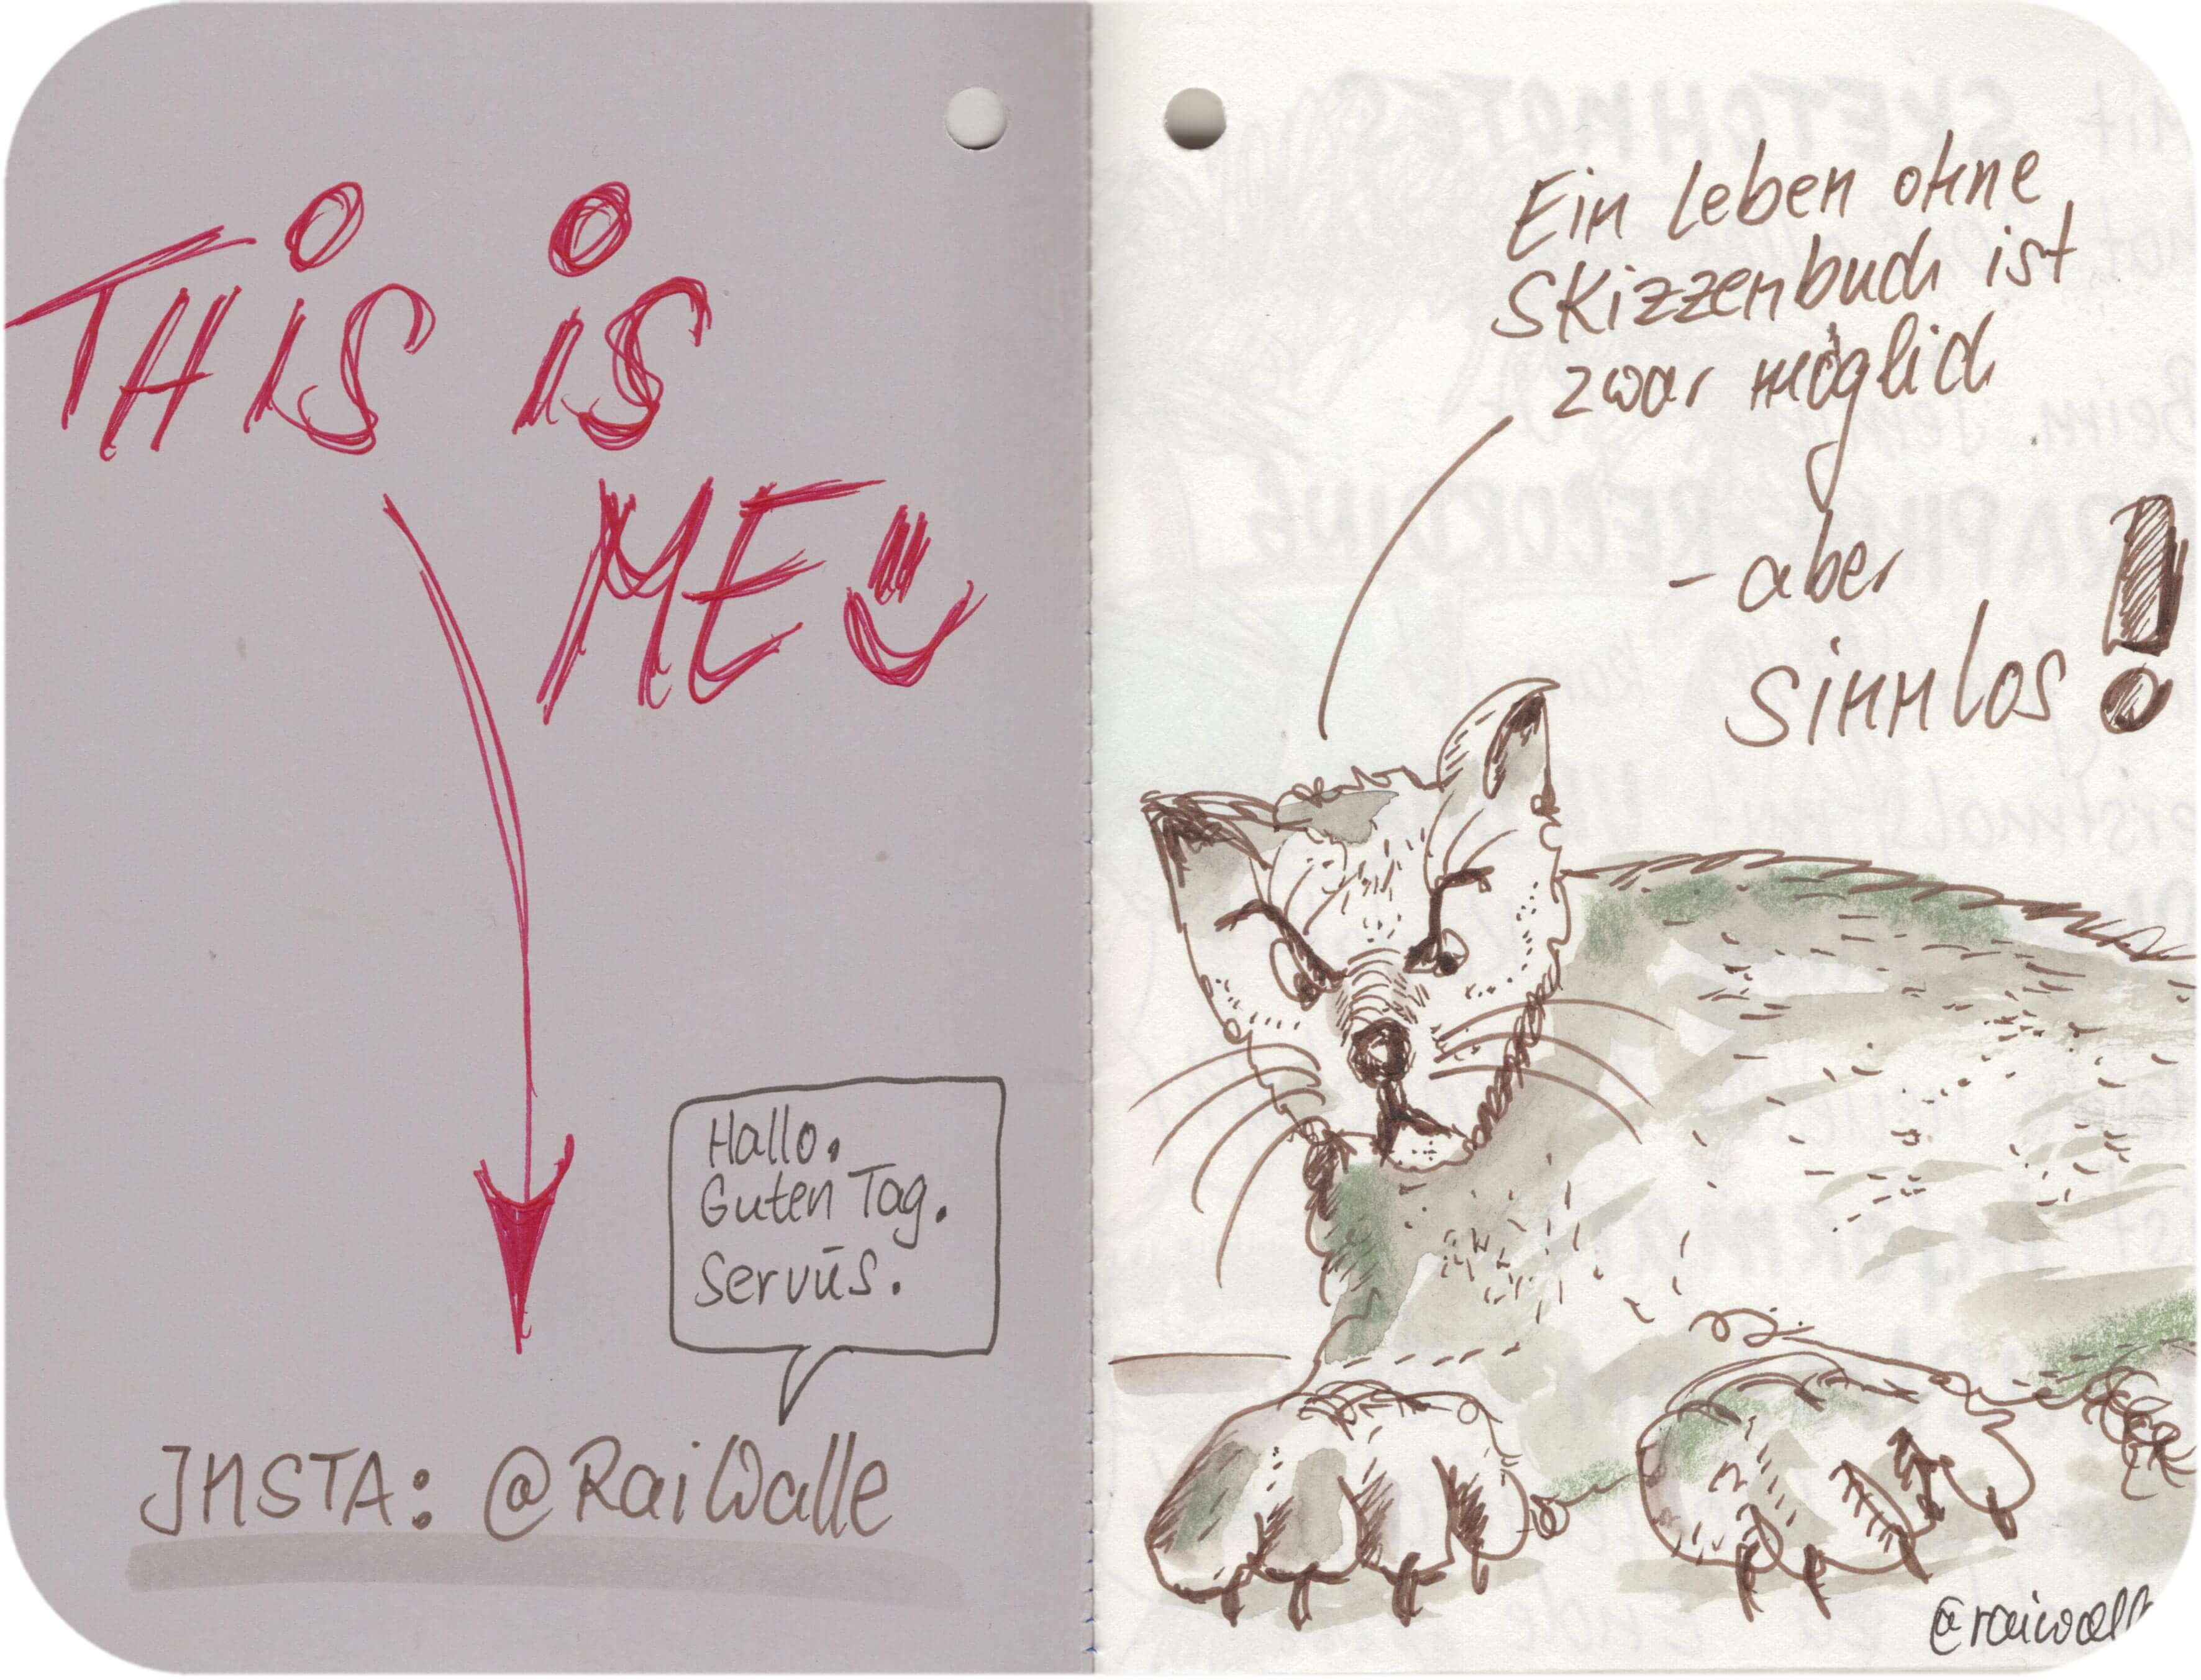 THiS iS
ME
Hallo.
Guten Tag.
Servus.
INSTA: @RaiWalle
Ein Leben ohne
Skizzenbuch ist
zwar möglich
- aber
sinnlos!
@raiwall